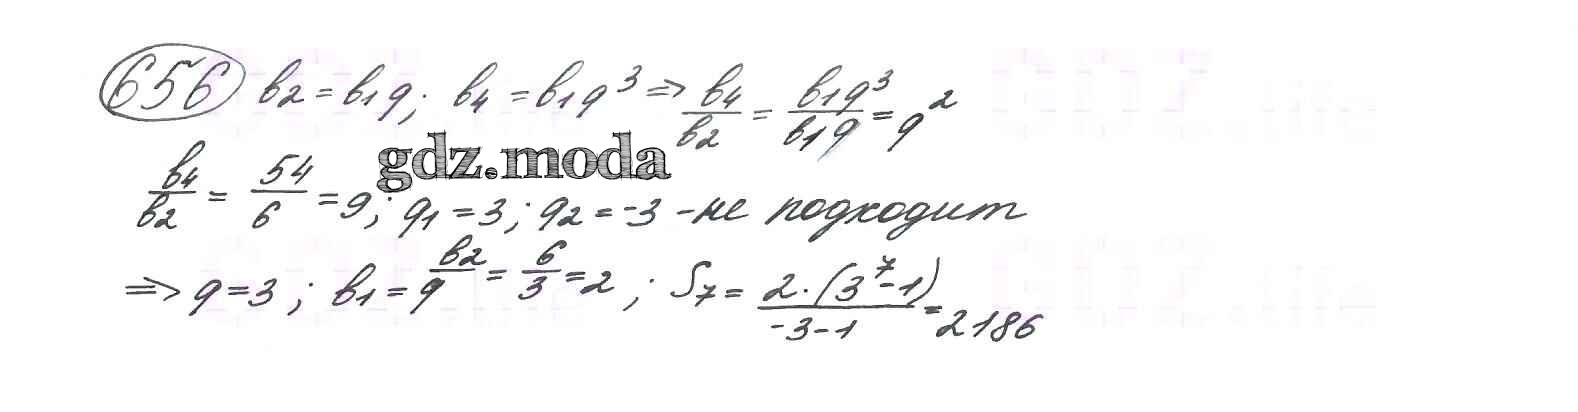 656 b₂ = b₁q; b₄ = b₁q³ => b₄/b₂ = b₁q³/b₁q = q²
gdz.moda
b₄/b₂ = 54/6 = 9; q₁ = 3; q₂ = -3 - не подходит
=> q = 3; b₁ = b₂/q = 6/3 = 2; S₇ = 2·(3⁷-1)/-3-1 = 2186